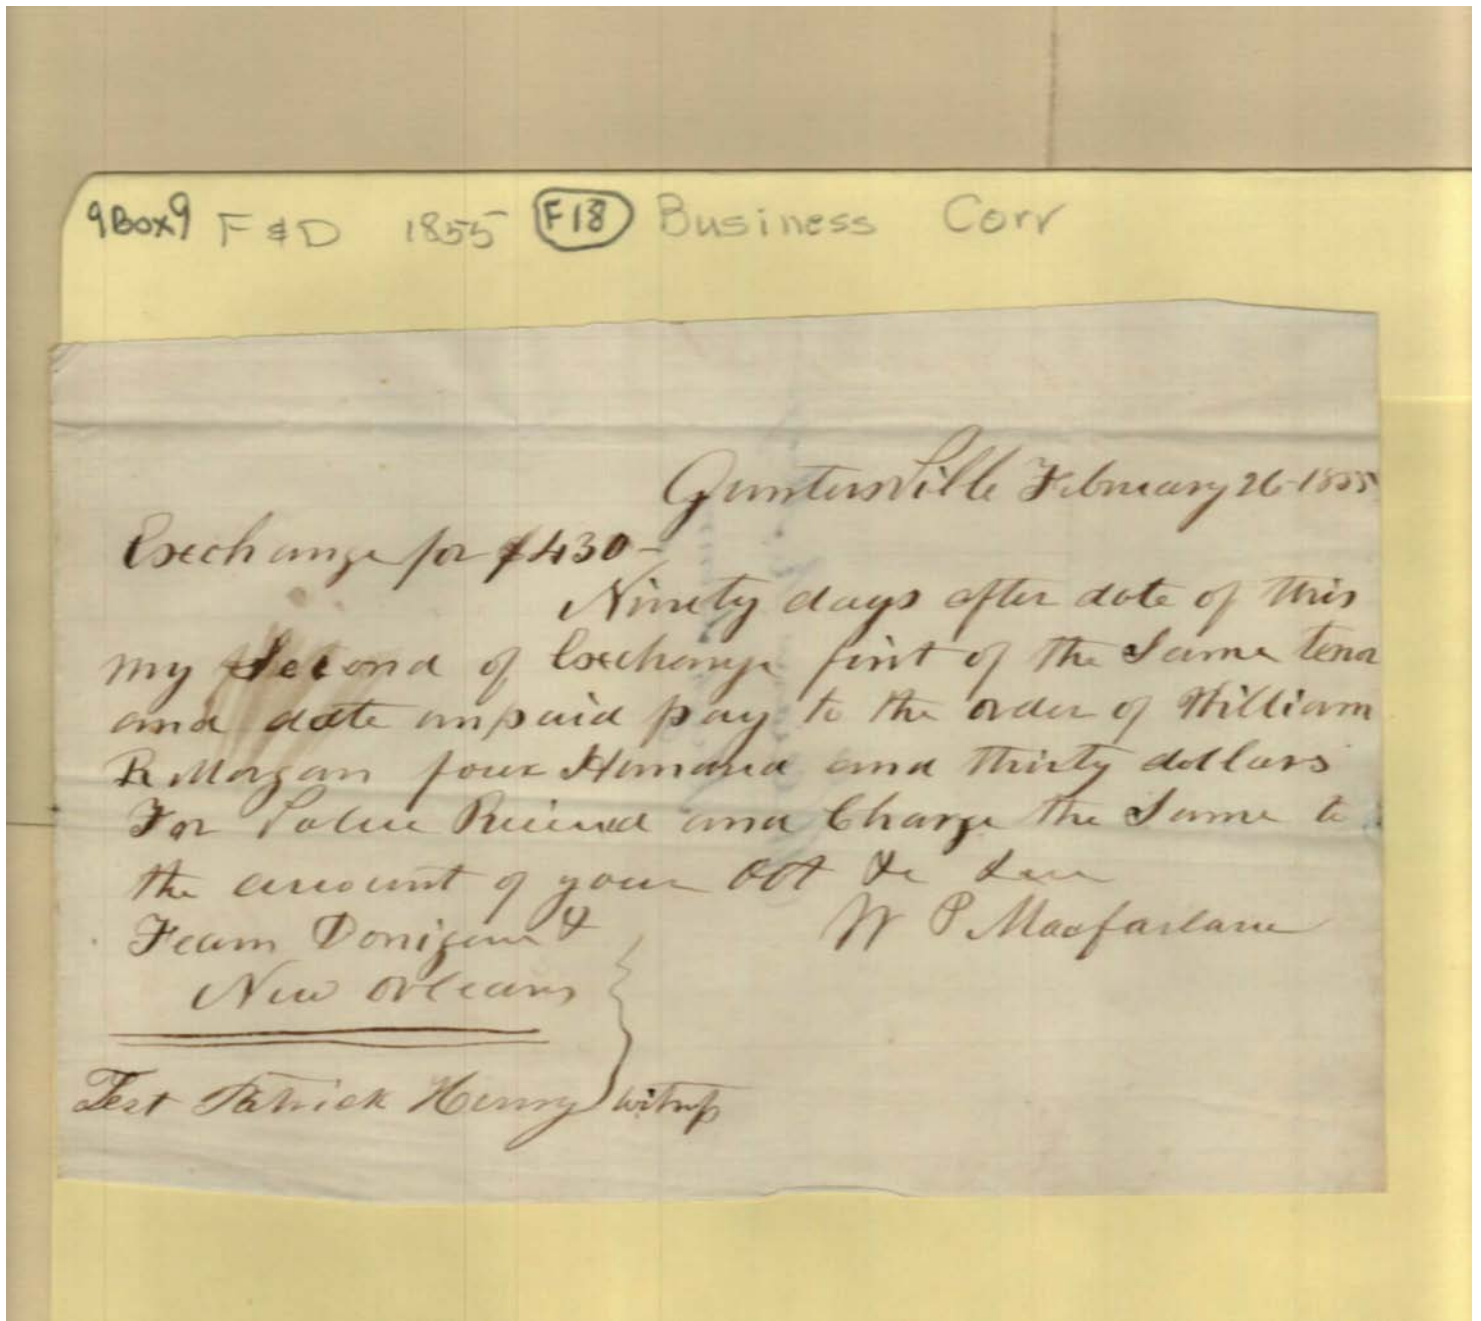 9Box9 F & D 1855 F18 Business Corr
Guntersville February 26-1855
Exchange for $430-
Ninety days after date of this
my Second of Exchange first of the Same tenor
and date unpaid pay to the order of William
R Morgan four Hundred and thirty dollars
For Value Received and Charge the Same to
the amount of your Obt &c
Fearn Donigan &
New Orleans
W P Macfarlane
Test Patrick Henry witness